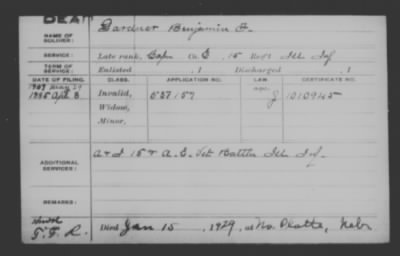 DEAF
NAME OF SOLDIER: Gardner Benjamin F.
SERVICE: Late rank, Corp Co. E, 15 Reg't Ill Inf
TERM OF SERVICE: Enlisted , 1 Discharged , 1
DATE OF FILING. CLASS. APPLICATION NO. LAW. CERTIFICATE NO.
1885 Apl 8 Invalid, 537157 J 1010945
Widow,
Minor,
ADDITIONAL SERVICES: & E. Vet Battn Ill Inf.
REMARKS:
Died Jan 15, 1929, at No. Platte, Nebr